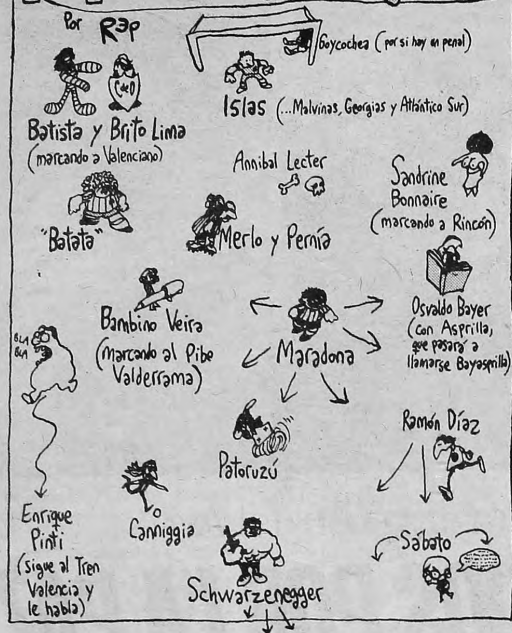 Por Rep
Goycochea (por si hay un penal)
C de D
Islas (...Malvinas, Georgias y Atlántico Sur)
Batista y Brito Lima
(marcando a Valenciano)
Annibal Lecter
Sandrine
Bonnaire
(marcando a Rincón)
"Batata"
Merlo y Pernía
Bambino Veira
(marcando al Pibe
Valderrama)
Maradona
Osvaldo Bayer
(con Asprilla,
que pasará a
llamarse Bayasprilla)
BLA
BLA
Patoruzú
Ramón Díaz
Enrique
Pinti
(sigue al Tren
Valencia y
le habla)
Canniggia
Schwarzenegger
Sábato